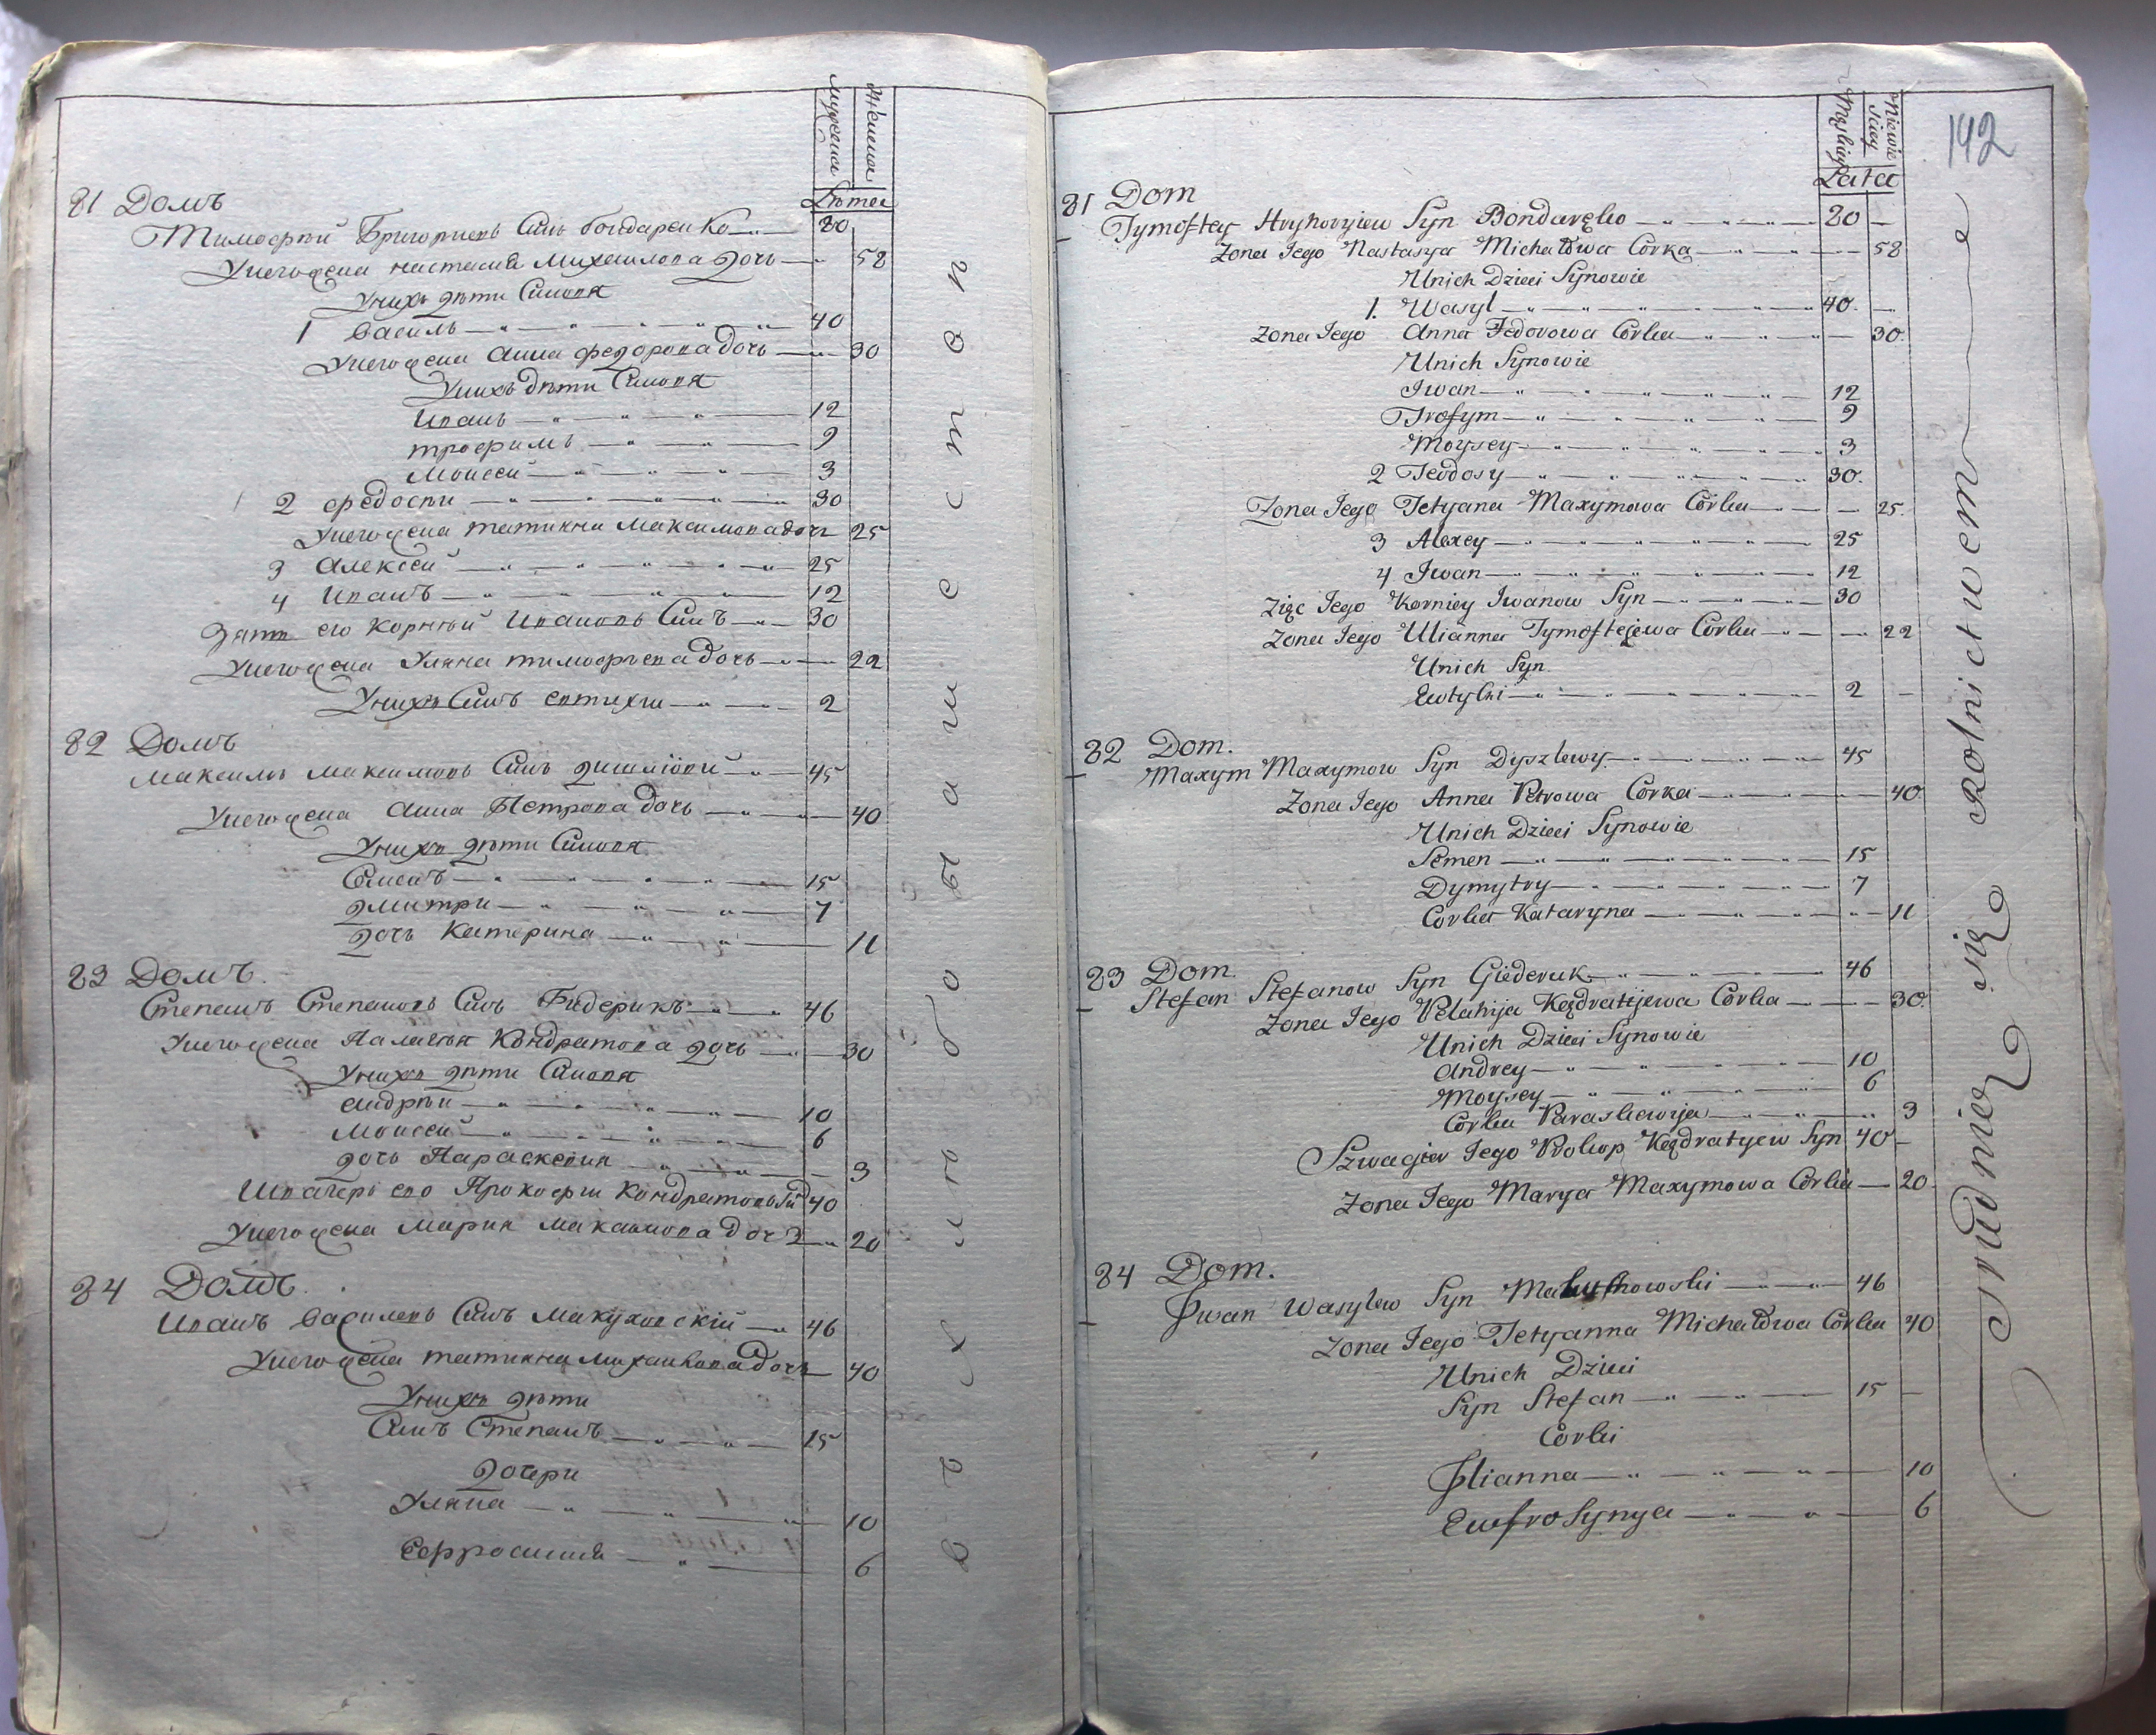 мужеска
Женска
Лѣта
81 Домъ
Тимоѳѣй Григориевъ Синъ бондаренко 80
Унего жена настасия Михаилова дочь 58
Унихъ дѣти Синовя
1 василь 40
Унего жена анна федорова дочь 30
Унихъ дѣти Синовя
Иванъ 12
трофимъ 9
Моисей 3
2 федосѣи 30
Унего жена татияна Максимова дочь 25
3 Алексѣй 25
4 Иванъ 12
Зять его Корнѣй Ивановъ Синъ 30
Унего жена Уляна тимофѣева дочь 22
Унихъ Синъ евтихи 2
82 Домъ
Максимъ Максимовъ Синъ дишлювий 45
Унего жена анна Петрова дочь 40
Унихъ дѣти Синовя
Семенъ 15
дмитри 7
дочь Катерина 11
83 Домъ
Степанъ Степановъ Синъ Гидерикъ 46
Унего жена Палагия Кондратова дочь 30
Унихъ дѣти Синовя
андрѣи 10
Моисей 6
дочь Параскевия 3
Швагеръ его Прокофи Кондратовъ Синъ 40
Унего жена Мария Максимова дочь 20
84 Домъ
Иванъ василевъ Синъ Макуховскій 46
Унего жена татияна Михаилова дочь 40
Унихъ дѣти
Синъ Степанъ 15
дочери
Уляна 10
Ефросиния 6
хлѣбопашеством
142
Męskiey
Niewieściey
Lata
81 Dom
Tymoftey Hryhoryiew Syn Bondaręko 80
Zona Jego Nastasya Michałowa Corka 58
Unich Dzieci Synowie
1. Wasyl 40
Zona Jego Anna Fedorowa Corka 30
Unich Synowie
Jwan 12
Trofym 9
Moysey 3
2 Teodosy 30
Zona Jego Tetyana Maxymowa Corka 25
3 Alexey 25
4 Jwan 12
Zięc Jego Korniey Jwanow Syn 30
Zona Jego Ulianna Tymoftejewa Corka 22
Unich Syn
Ewtyhi 2
82 Dom.
Maxym Maxymow Syn Dyszlewy 45
Zona Jego Anna Petrowa Corka 40
Unich Dzieci Synowie
Semen 15
Dymytry 7
Corka Kataryna 11
83 Dom.
Stefan Stefanow Syn Giederuk 46
Zona Jego Pelahija Kądratijewa Corka 30
Unich Dzieci Synowie
Andrey 10
Moysey 6
Corka Paraskewija 3
Szwagier Jego Prokop Kądratyew Syn 40
Zona Jego Marya Maxymowa Corka 20
84 Dom.
Jwan Wasylew Syn Makuchowski 46
Zona Jego Tetyanna Michałowa Corka 40
Unich Dzieci
Syn Stefan 15
Corki
Ulianna 10
Ewfrosynya 6
Trudnią się Rolnictwem